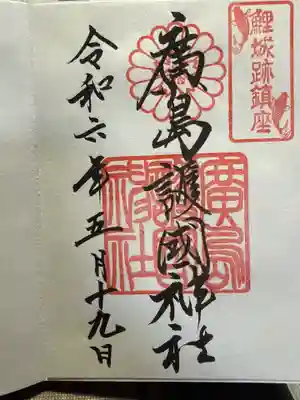 鯉城跡鎮座
廣島護國神社
令和六年五月十九日
廣島
護國
神社